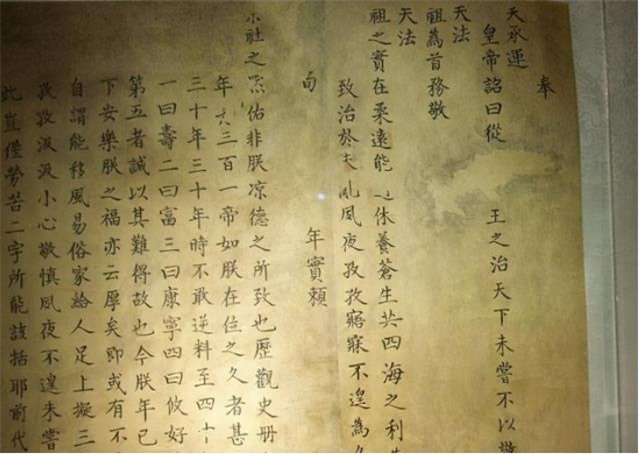 奉
天承運
皇帝詔曰從 王之治天下未嘗不以敬
天法
祖為首務敬
天法
祖之實在柔遠能 休養蒼生共四海之利
致治於未 夙夜孜孜寤寐不遑為久
旬 年實賴
社之黙佑非朕凉德之所致也歷觀史册
年 三百一帝如朕在位之久者甚
三十年三十年時不敢逆料至四十
一曰壽二曰富三曰康寧四曰攸好
第五者誠以其難得故也今朕年已
下安樂朕之福亦云厚矣即或有不
自謂能移風易俗家給人足上擬三
孜孜汲汲小心敬慎夙夜不遑未嘗
此豈僅勞苦二字所能該括耶前代